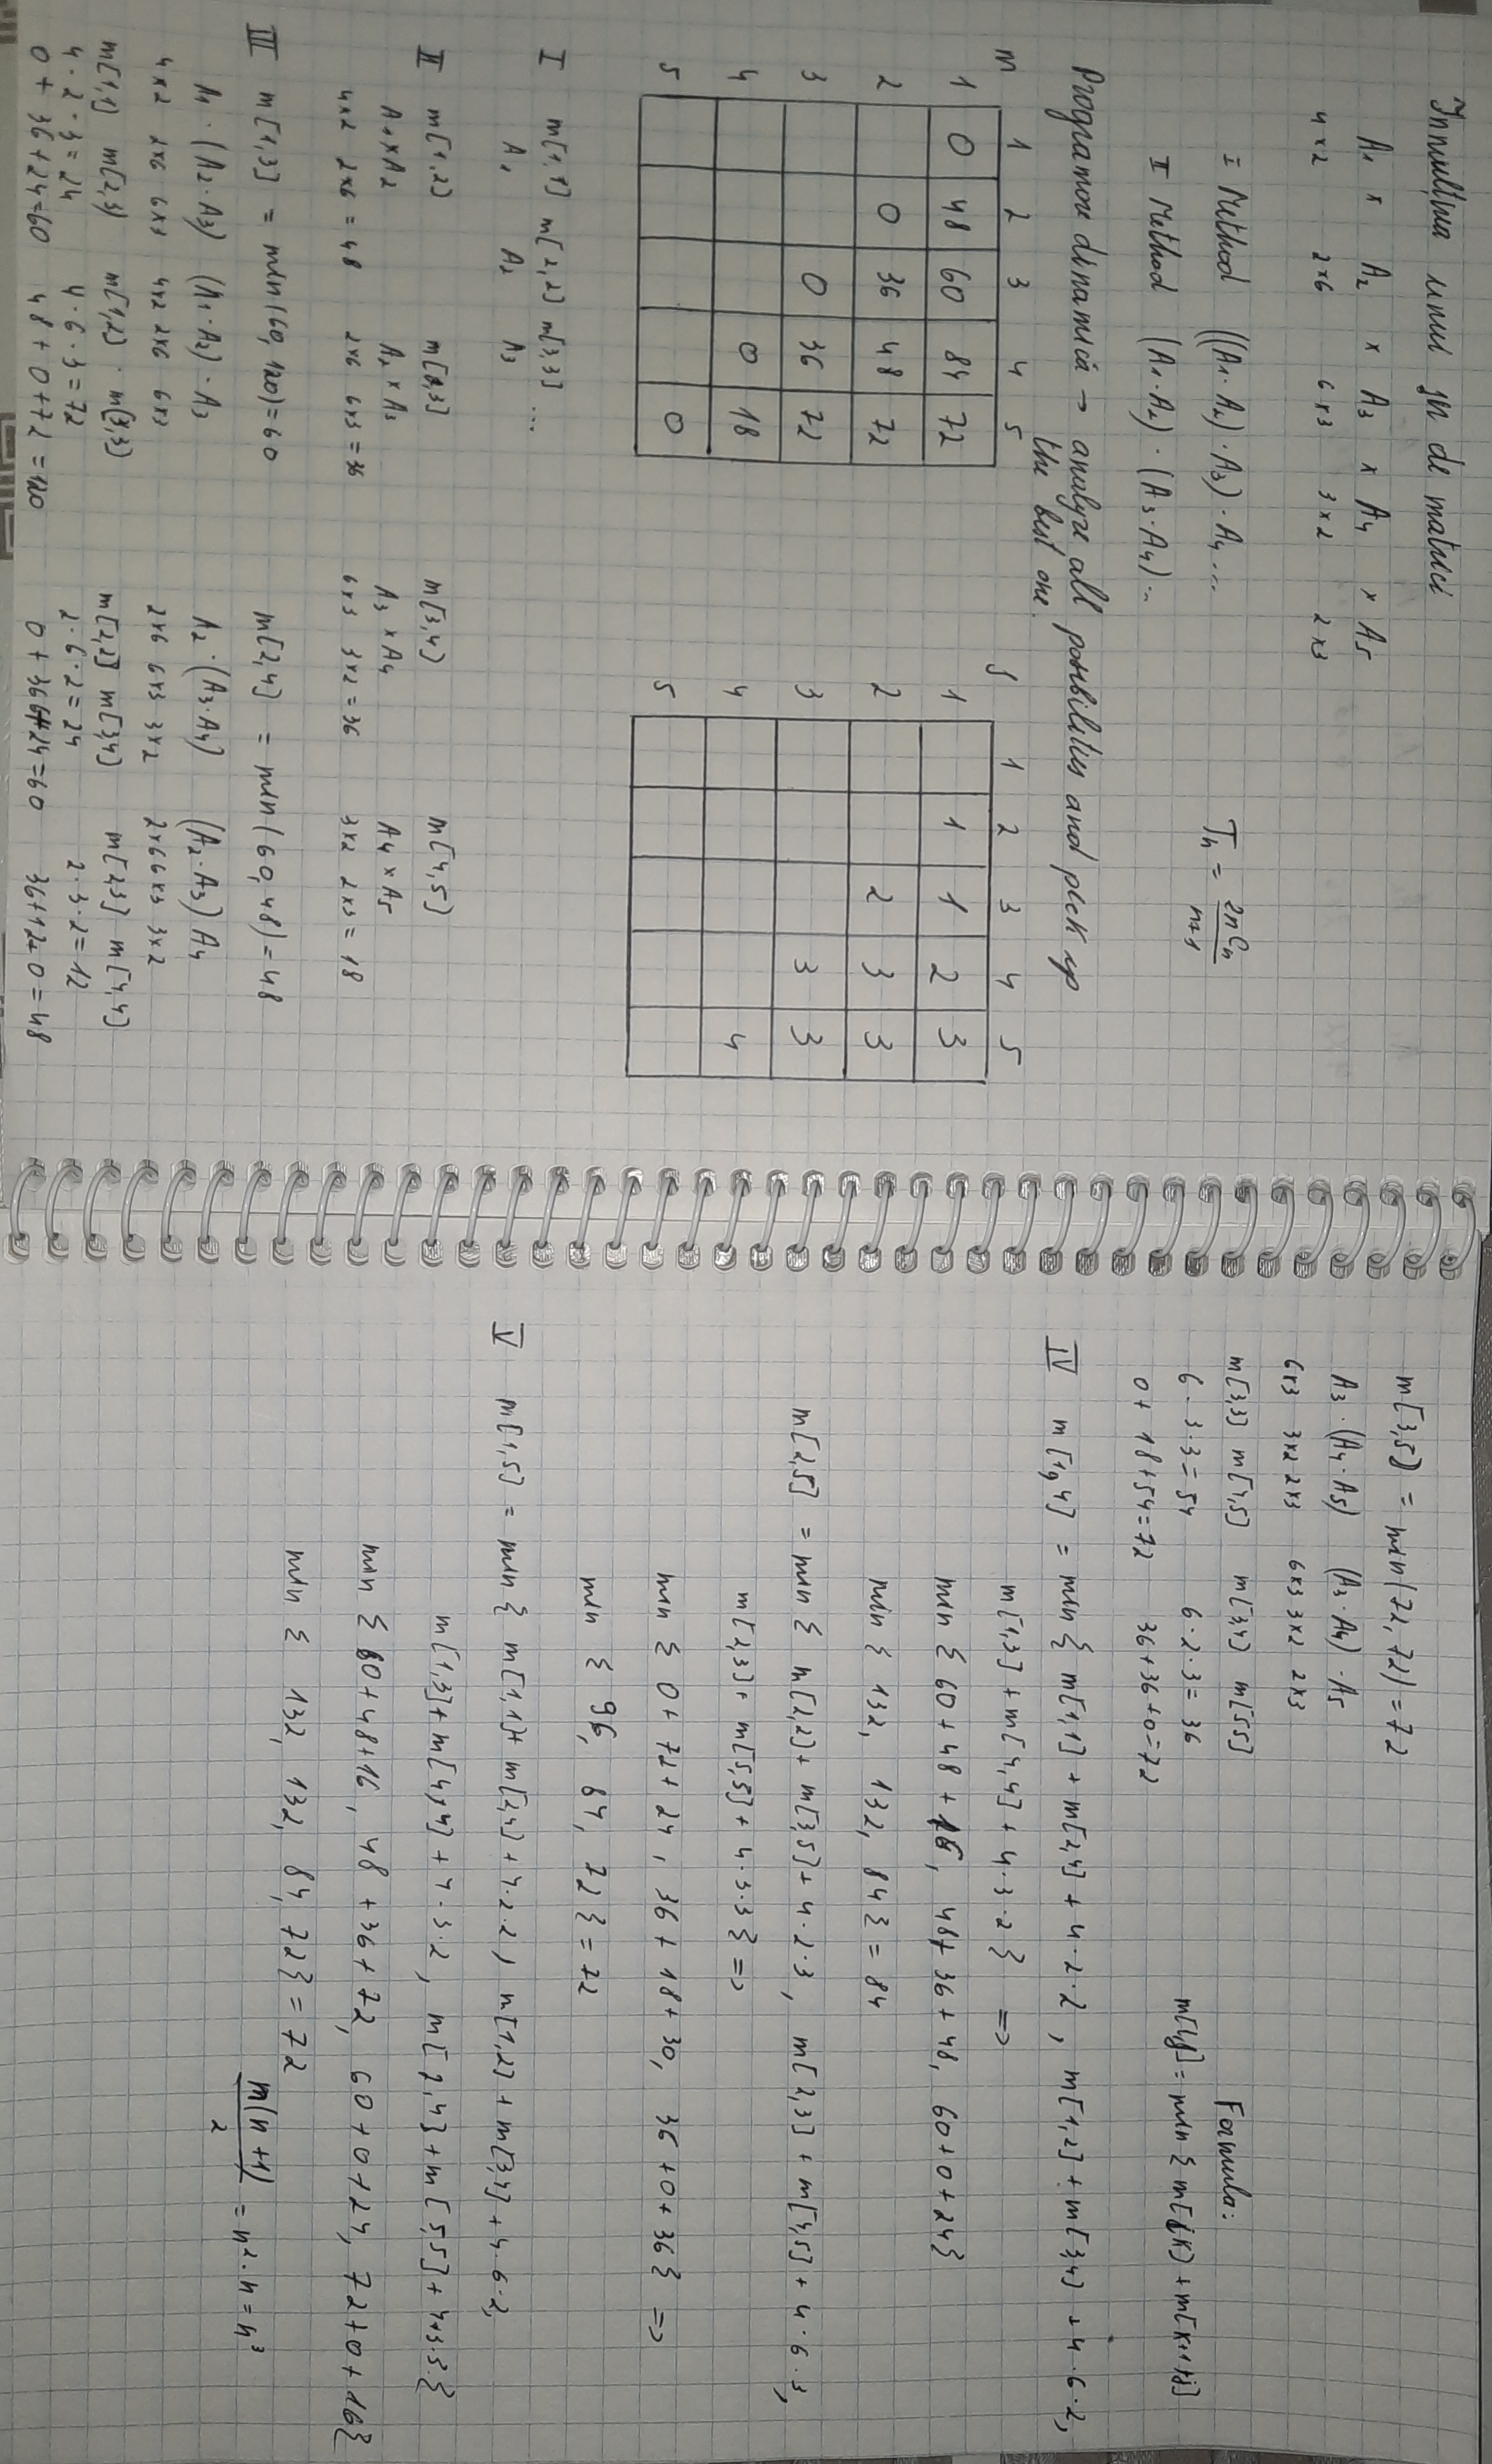 Inmulțirea unui șir de matrici
A1 x A2 x A3 x A4 x A5
4x2 2x6 6x3 3x2 2x3
I Method ((A1·A2)·A3)·A4...
II Method (A1·A2)·(A3·A4)..
Tn = 2nCn / n+1
Programare dinamică → analyze all posibilities and peek up
the best one.
m 1 2 3 4 5
1 0 48 60 84 72
2 0 36 48 72
3 0 36 72
4 0 18
5 0
s 1 2 3 4 5
1 1 1 2 3
2 2 3 3
3 3 3
4 4
5
I m[1,1] m[2,2] m[3,3] ...
A1 A2 A3
II m[1,2] m[2,3] m[3,4] m[4,5]
A1 x A2 A2 x A3 A3 x A4 A4 x A5
4x2 2x6 = 48 2x6 6x3 = 36 6x3 3x2 = 36 3x2 2x3 = 18
III m[1,3] = min(60, 120) = 60 m[2,4] = min(60, 48) = 48
A1·(A2·A3) (A1·A2)·A3 A2·(A3·A4) (A2·A3) A4
4x2 2x6 6x3 4x2 2x6 6x3 2x6 6x3 3x2 2x6 6x3 3x2
m[1,1] m[2,3] m[1,2] · m[3,3] m[2,2] m[3,4] m[2,3] m[4,4]
4·2·3=24 4·6·3=72 2·6·2=24 2·3·2=12
0+36+24=60 48+0+72=120 0+36+24=60 36+12+0=48
m[3,5] = min(72, 72) = 72
A3·(A4·A5) (A3·A4)·A5
6x3 3x2 2x3 6x3 3x2 2x3
m[3,3] m[4,5] m[3,4] m[5,5]
6·3·3=54 6·2·3=36
0+18+54=72 36+36+0=72
Formula:
m[i,j] = min { m[i,k] + m[k+1,j]
IV m[1,4] = min { m[1,1] + m[2,4] + 4·2·2, m[1,2] + m[3,4] + 4·6·2,
m[1,3] + m[4,4] + 4·3·2 } =>
min { 60 + 48 + 16, 48 + 36 + 48, 60+0+24}
min { 132, 132, 84 } = 84
m[2,5] = min { m[2,2] + m[3,5] + 4·2·3, m[2,3] + m[4,5] + 4·6·3,
m[2,3] + m[5,5] + 4·3·3 } =>
min { 0+72+24, 36+18+30, 36+0+36 } =>
min { 96, 84, 72 } = 72
V m[1,5] = min { m[1,1] + m[2,4] + 4·2·2, m[1,2] + m[3,4] + 4·6·2,
m[1,3] + m[4,4] + 4·3·2, m[2,4] + m[5,5] + 4·3·3 }
min { 60+48+16, 48+36+72, 60+0+24, 72+0+16}
min { 132, 132, 84, 72} = 72
n(n+1) / 2 = n²·n = n³